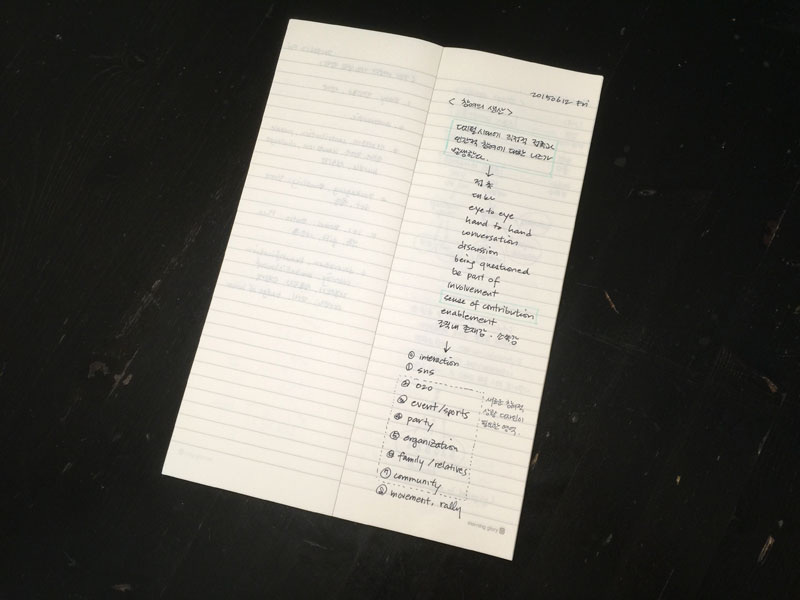 20150612 Fri
< 참여의 생산 >
디지털시대에 직접적 접촉과
인간적 참여에 대한 니즈가
발생한다.
↓
접촉
대화
eye to eye
hand to hand
conversation
discussion
being questioned
be part of
involvement
sense of contribution
enablement
조직내 존재감. 소속감
↓
⓪ interaction
① sns
② O2O
③ event/sports
④ party
⑤ organization
⑥ family/relatives
⑦ community
⑧ movement, rally
새로운 참여적
경험 디자인이
필요한 영역.
morning glory